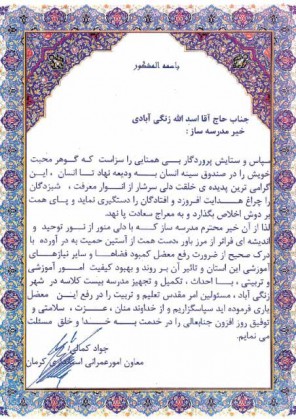 باسمه المشکور
جناب حاج آقا اسد الله زنگی آبادی
خیر مدرسه ساز :
سپاس و ستایش پروردگار بی همتایی را سزاست که گوهر محبت
خویش را در صندوق سینه انسان به ودیعه نهاد تا انسان ، این
گرامی ترین پدیده ی خلقت دلی سرشار از انوار معرفت ، شبزدگان
را چراغ هدایت افروزد و افتادگان را دستگیری نماید و پای همت
بر دوش اخلاص بگذارد و به معراج سعادت پا نهد.
لذا از آن خیر محترم مدرسه ساز که با دلی منور از نور توحید و
اندیشه ای فراتر از مرز باور ،دست همت از آستین حمیت به در آورده با
درک صحیح از ضرورت رفع معضل کمبود فضاها و سایر نیازهای
آموزشی این استان و تاثیر آن بر روند و بهبود کیفیت امور آموزشی
و تربیتی ، با احداث ، تکمیل و تجهیز مدرسه بیست کلاسه در شهر
زنگی آباد ، مسئولین امر مقدس تعلیم و تربیت را در رفع این معضل
یاری فرموده اید سپاسگزاریم و از خداوند منان ، عزت ، سلامتی و
توفیق روز افزون جنابعالی را در خدمت به خدا و خلق مسئلت
می نمایم.
جواد کمالی
معاون امورعمرانی استانداری کرمان